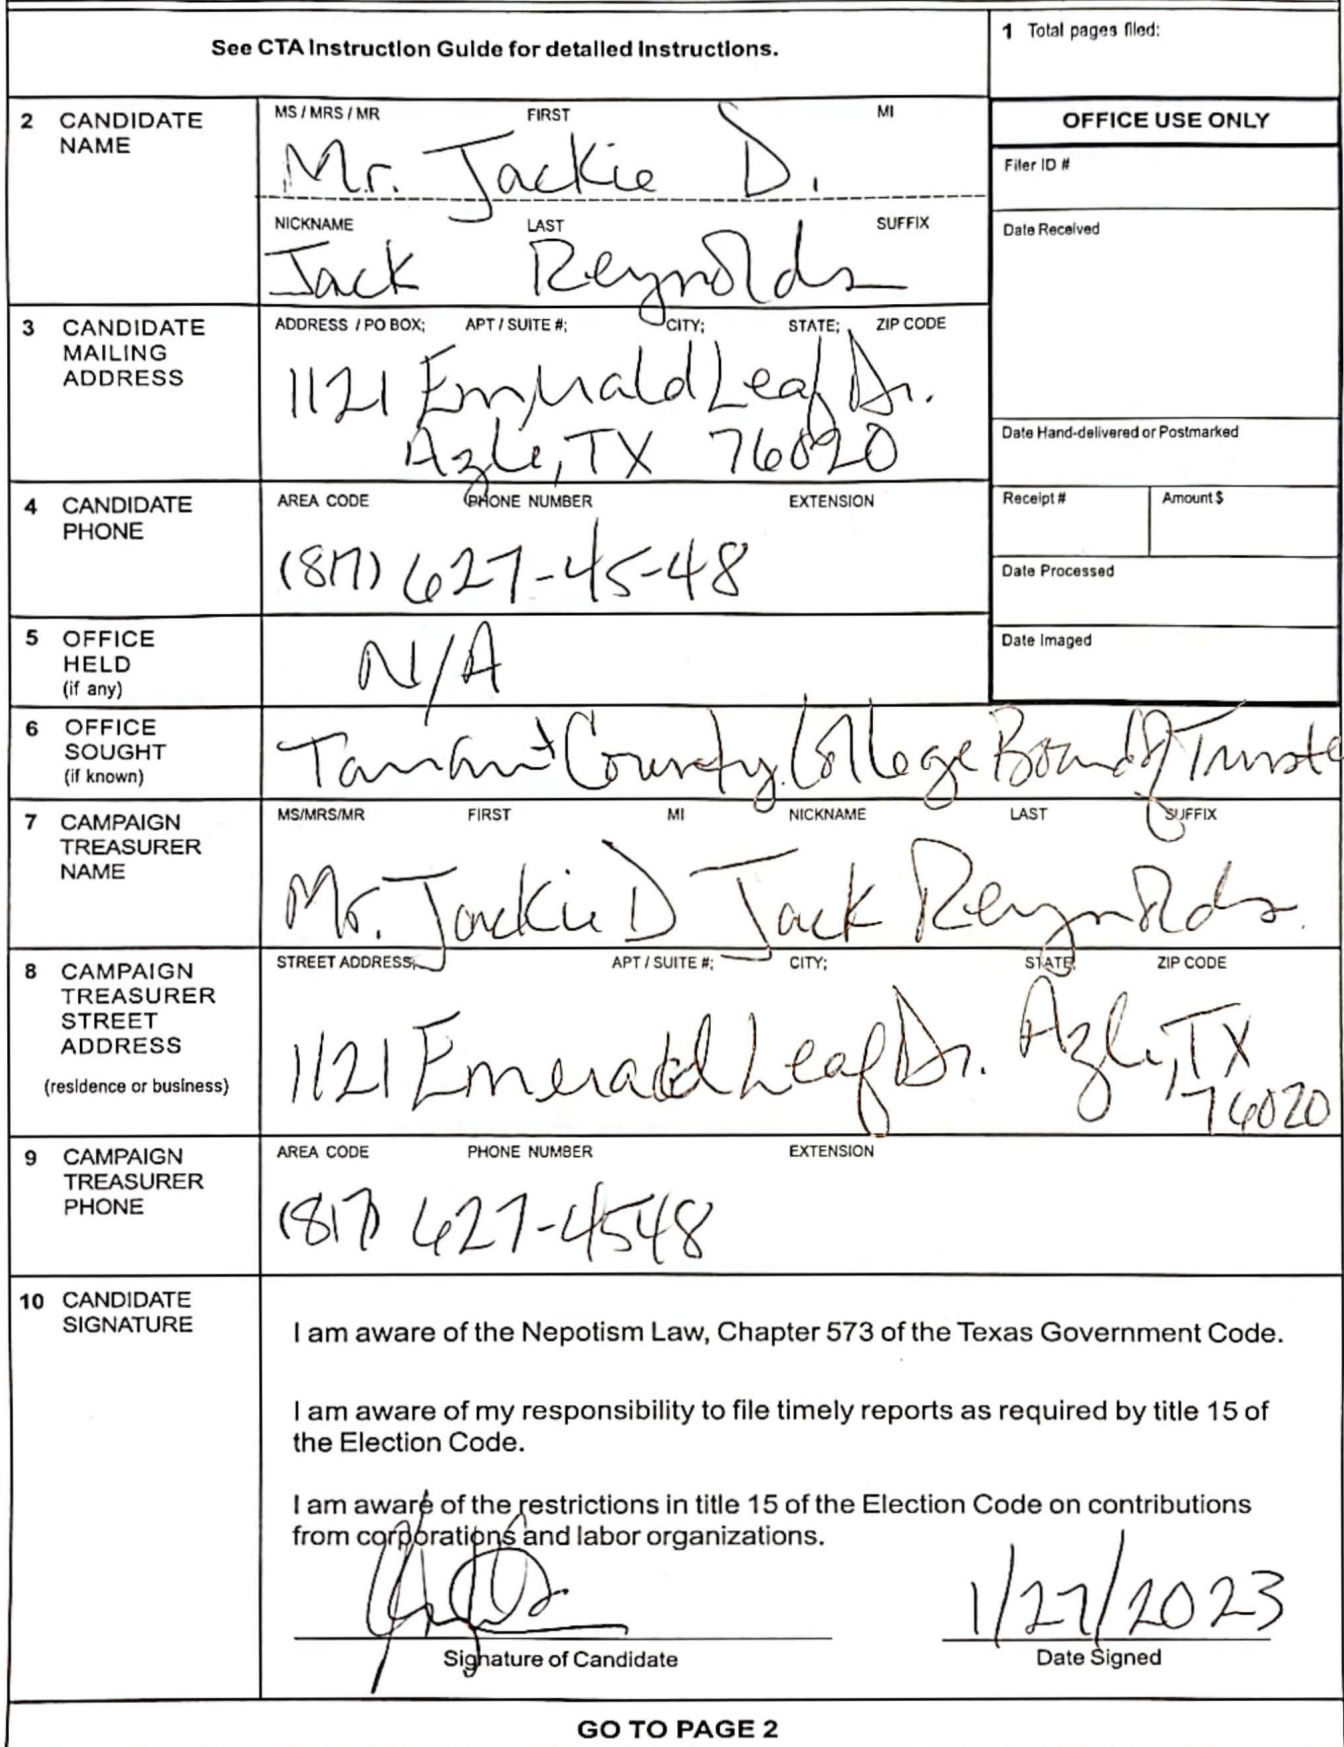 See CTA Instruction Guide for detailed instructions.
1 Total pages filed:
2 CANDIDATE NAME
MS / MRS / MR FIRST MI
Mr. Jackie D.
NICKNAME LAST SUFFIX
Jack Reynolds
OFFICE USE ONLY
Filer ID #
Date Received
3 CANDIDATE MAILING ADDRESS
ADDRESS / PO BOX; APT / SUITE #; CITY; STATE; ZIP CODE
1121 Emerald Leaf Dr.
Azle, TX 76020
Date Hand-delivered or Postmarked
4 CANDIDATE PHONE
AREA CODE PHONE NUMBER EXTENSION
(817) 627-45-48
Receipt # Amount $
Date Processed
5 OFFICE HELD (if any)
N/A
Date Imaged
6 OFFICE SOUGHT (if known)
Tarrant County College Board of Truste
7 CAMPAIGN TREASURER NAME
MS/MRS/MR FIRST MI NICKNAME LAST SUFFIX
Mr. Jackie D Jack Reynolds
8 CAMPAIGN TREASURER STREET ADDRESS
(residence or business)
STREET ADDRESS; APT / SUITE #; CITY; STATE; ZIP CODE
1121 Emerald Leaf Dr. Azle, TX
76020
9 CAMPAIGN TREASURER PHONE
AREA CODE PHONE NUMBER EXTENSION
(817) 627-4548
10 CANDIDATE SIGNATURE
I am aware of the Nepotism Law, Chapter 573 of the Texas Government Code.
I am aware of my responsibility to file timely reports as required by title 15 of
the Election Code.
I am aware of the restrictions in title 15 of the Election Code on contributions
from corporations and labor organizations.
1/27/2023
Signature of Candidate Date Signed
GO TO PAGE 2